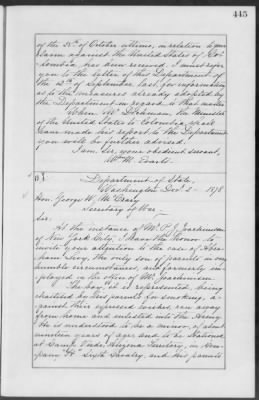 445
of the 30th of October ultimo, in relation to your
claim against the United States of Co-
lombia, has been received. I must refer
you to the letter of this Department of
the 12th of September, last, for information
as to the measures already adopted by
the Department in regard to that matter.
When Mr. Dichman, the Minister
of the United States to Colombia, shall
have made his report to the Department
you will be further advised.
I am, Sir, your obedient servant,
Wm. M. Evarts.
Department of State,
Washington Decr. 2 1878
Hon. George W. McCrary
Secretary of War
Sir:
At the instance of Mr. P. J. Joachimsen
of New York City, I have the honor to
invite your attention to the case of Abra-
ham Levy, the only son of parents in
humble circumstances, and formerly em-
ployed in the office of Mr. Joachimsen.
The boy, it is represented, being
chastised by his parents for smoking, a-
gainst their expressed wishes, ran away
from home and enlisted into the Army.
He is understood to be a minor, of about
nineteen years of age, and to be stationed
at Camp Verde, Arizona Territory, in Com-
pany Sixth Cavalry, and his parents